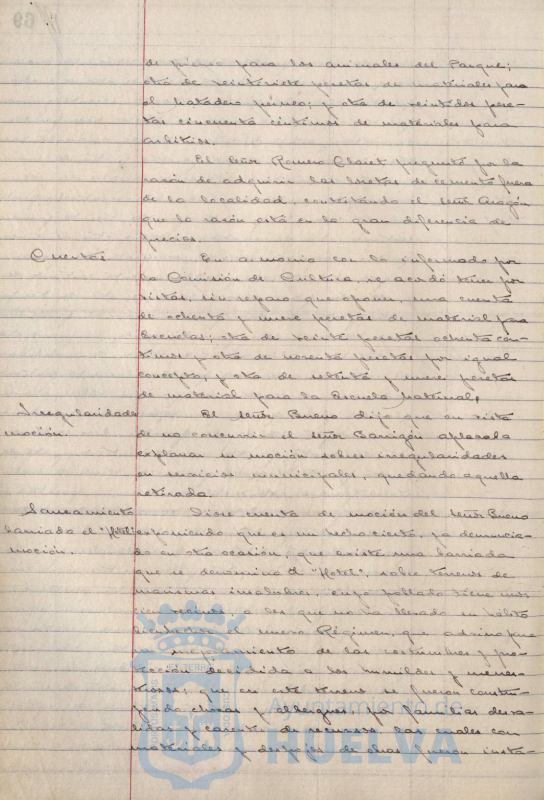 de pienso para los animales del Parque;
otra de veintisiete pesetas de materiales para
el matadero público; y otra de veintidos pese-
tas cincuenta céntimos de materiales para
arbitrios.
El Señor Romero Claret preguntó por la
razón de adquirir las losetas de cemento fuera
de la localidad, contestando el señor Aragón
que la razón está en la gran diferencia de
precios.
Cuentas
En armonía con lo informado por
la Comisión de Cultura, se acordó tener por
vistas, sin reparo que oponer, una cuenta
de ochenta y nueve pesetas de material para
Escuelas; otra de veinte pesetas ochenta cén-
timos y otra de noventa pesetas por igual
concepto, y otra de setenta y nueve pesetas
de material para la Escuela Maternal.
Irregularidades
moción.
El señor Bueno dijo que en vista
de no concurrir el señor Barrigón aplazaba
explanar su moción sobre irregularidades
en servicios municipales, quedando aquella
retirada.
Saneamiento
barriada el "Hotel"
moción.
Diose cuenta de moción del señor Bueno
exponiendo que es un hecho cierto, ya denuncia-
do en otra ocasión, que existe una barriada
que se denomina el "Hotel", sobre terrenos de
marismas insalubres, cuyo poblado tiene unos
cien vecinos, a los que no ha llegado su hálito
el nuevo Régimen, que advino para
un mejoramiento de las costumbres y pro-
tección decidida a los humildes y menes-
terosos; que en este terreno se fueron constru-
yendo chozas y albergues por familias desva-
lidas y carentes de recursos, las cuales con
materiales y despojos de obras fueron insta-
Ayuntamiento de
HUELVA
69